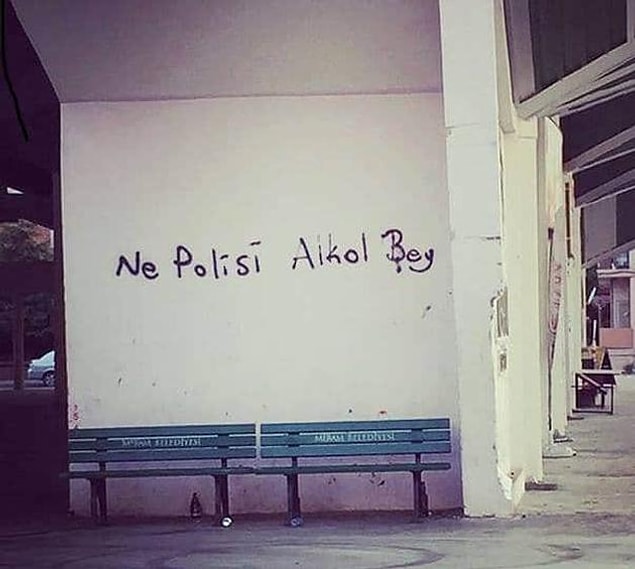 Ne Polisi Alkol Bey
MERAM BELEDİYESİ MERAM BELEDİYESİ